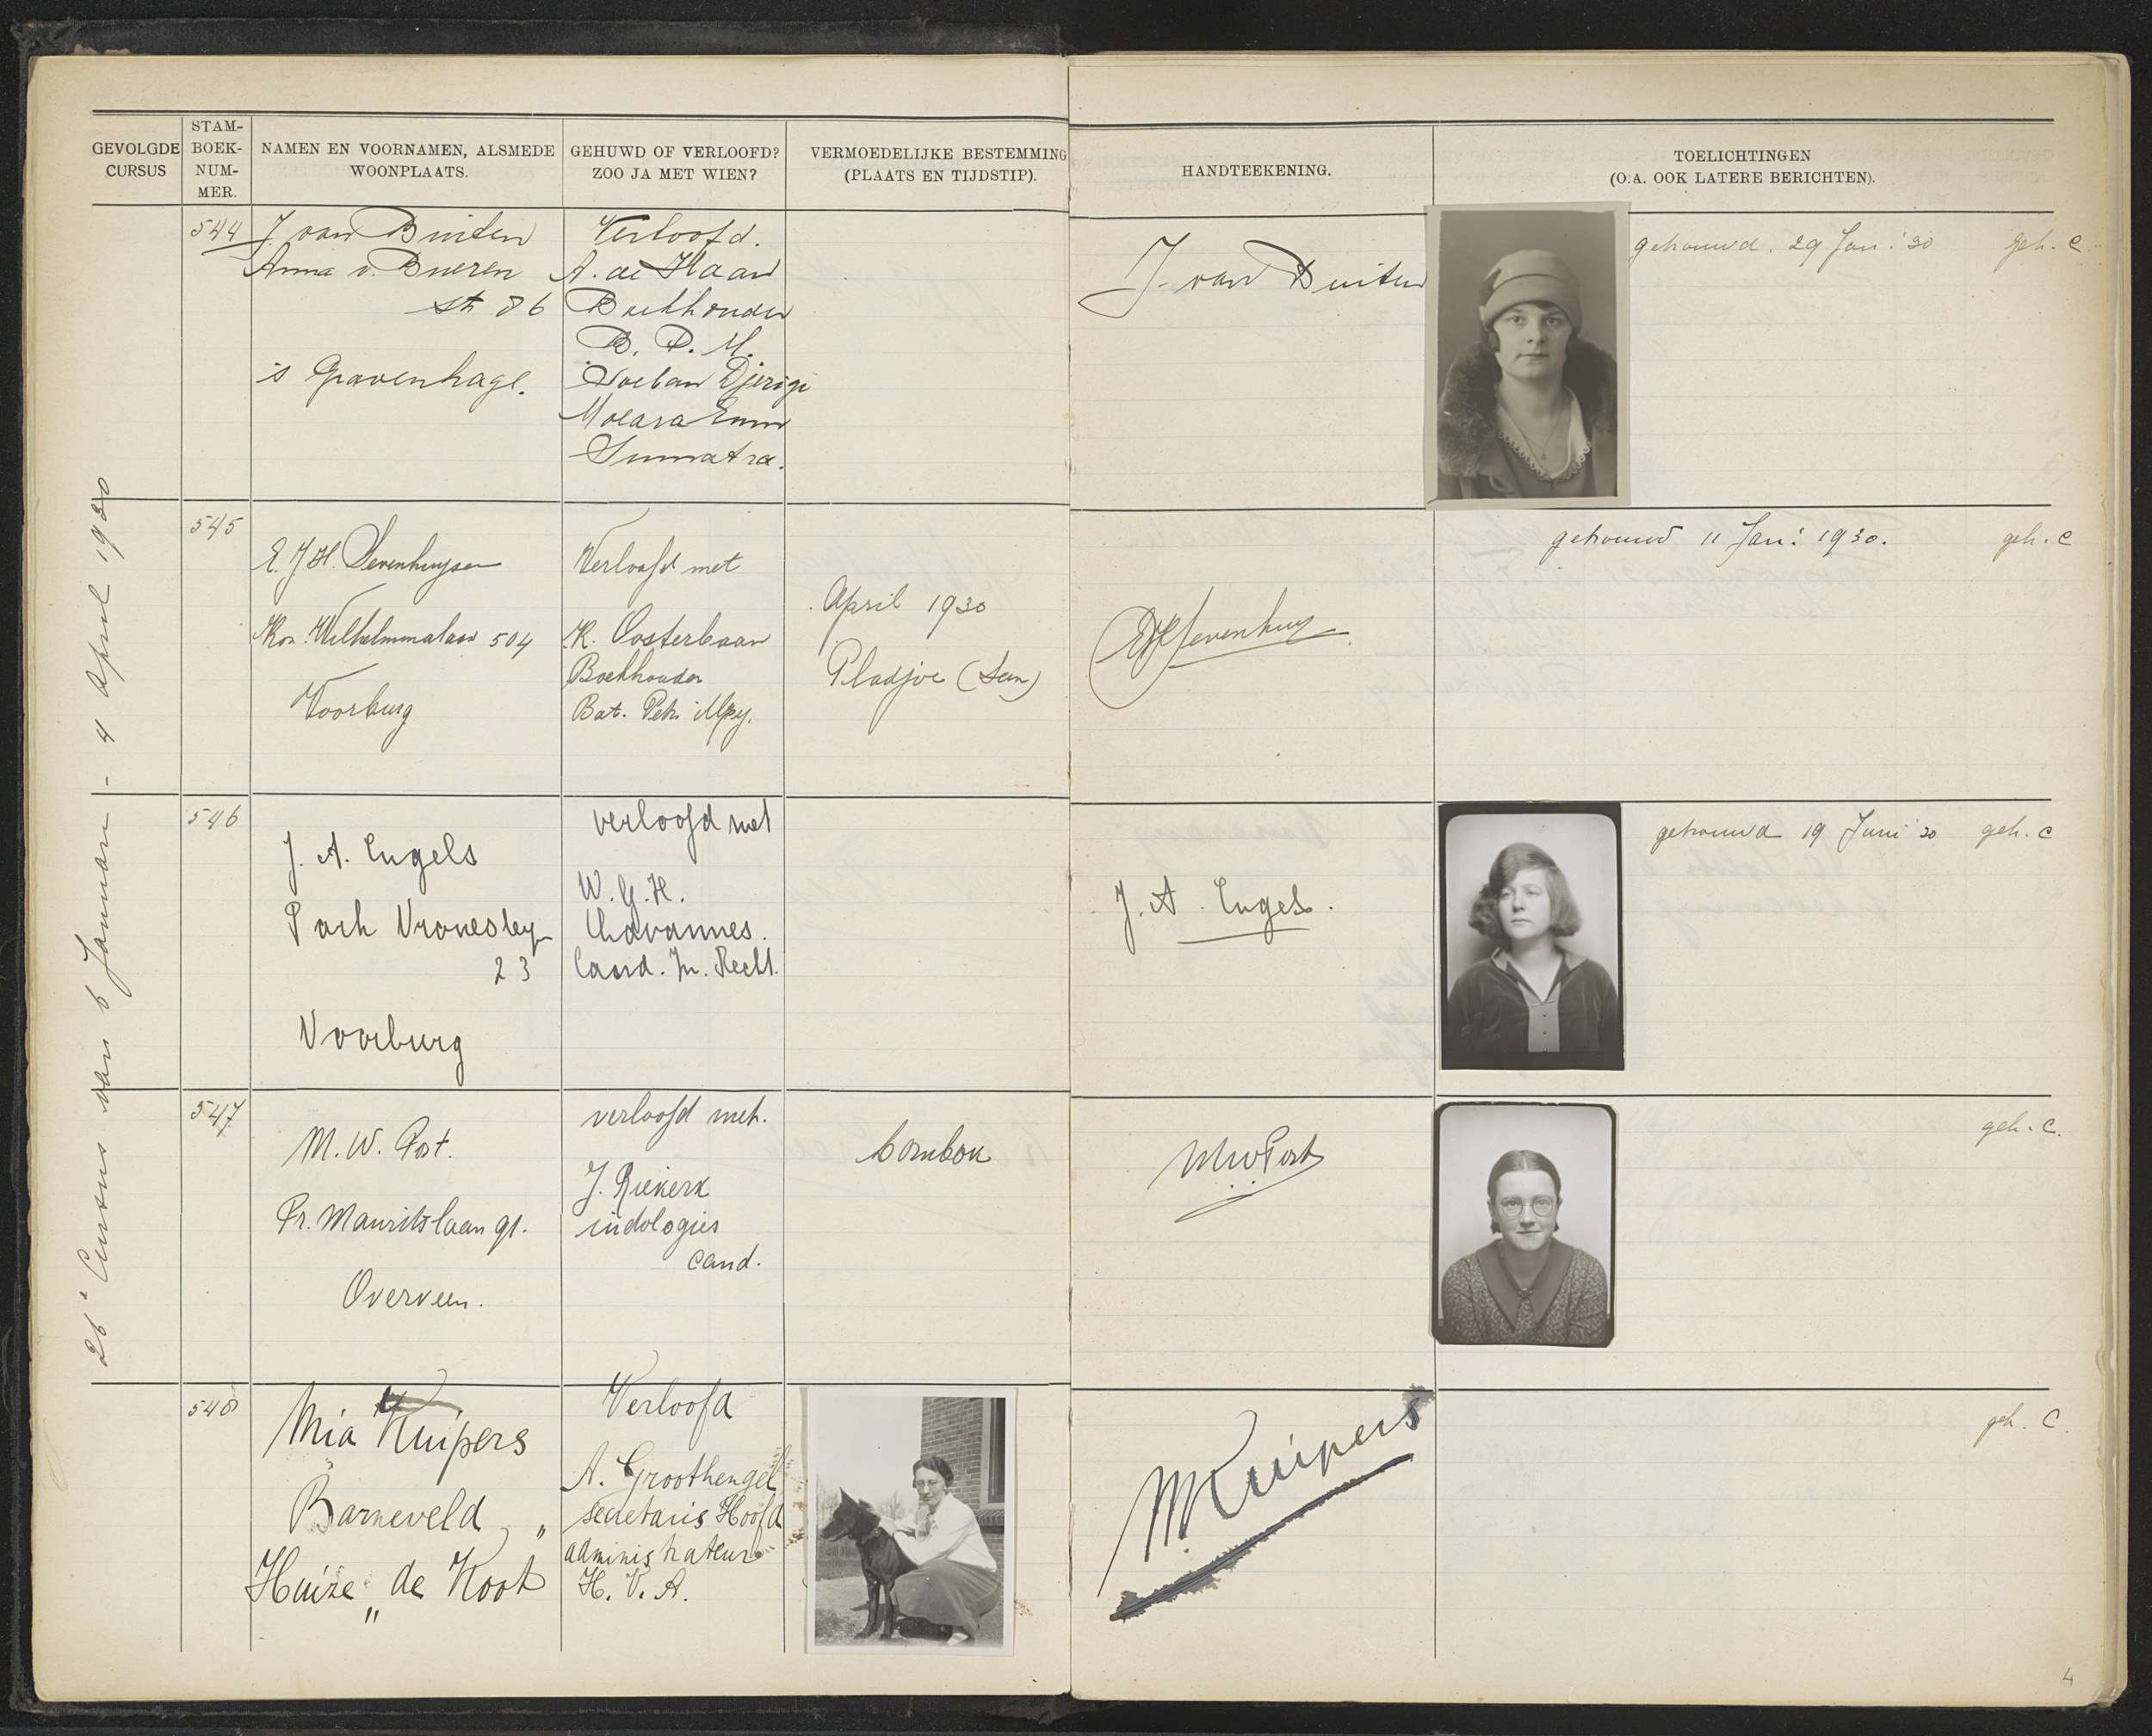 GEVOLGDE
CURSUS
STAM-
BOEK-
NUM-
MER.
NAMEN EN VOORNAMEN, ALSMEDE
WOONPLAATS.
GEHUWD OF VERLOOFD?
ZOO JA MET WIEN?
VERMOEDELIJKE BESTEMMING
(PLAATS EN TIJDSTIP).
HANDTEEKENING.
TOELICHTINGEN
(O.A. OOK LATERE BERICHTEN).
26e Cursus van 6 Januari - 4 April 1930
544
J. van Buiten
Anna v. Bueren
str 86
's Gravenhage.
Verloofd.
A. de Haan
Boekhouder
B. P. M.
Soeban Djerigi
Moeara Enim
Sumatra.
J. van Buiten
getrouwd. 29 Jan: '30
geh. C.
545
E. J. H. Sevenhuysen
Kon. Wilhelminalaan 504
Voorburg
Verloofd met
K. Oosterbaan
Boekhouder
Bat. Petr. Mpy.
April 1930
Pladjoe (Sum)
getrouwd 11 Jan: 1930.
geh. C
546
J. A. Engels
Park Vronesteyn
23
Voorburg
verloofd met
W. G. H.
Chavannes.
Cand. In. Recht.
J. A. Engels.
getrouwd 19 Juni '30
geh. C
547
M. W. Post.
Pr. Mauritslaan 91.
Overveen.
verloofd met.
J. Riekerk
indologies
cand.
Lombok
MWPost
geh. C.
548
Mia Kuipers
Barneveld, "
Huize "de Koot
Verloofd
A. Groothengel
secretaris Hoofd
administrateur
H. V. A.
MKuipers
geh. C.
4